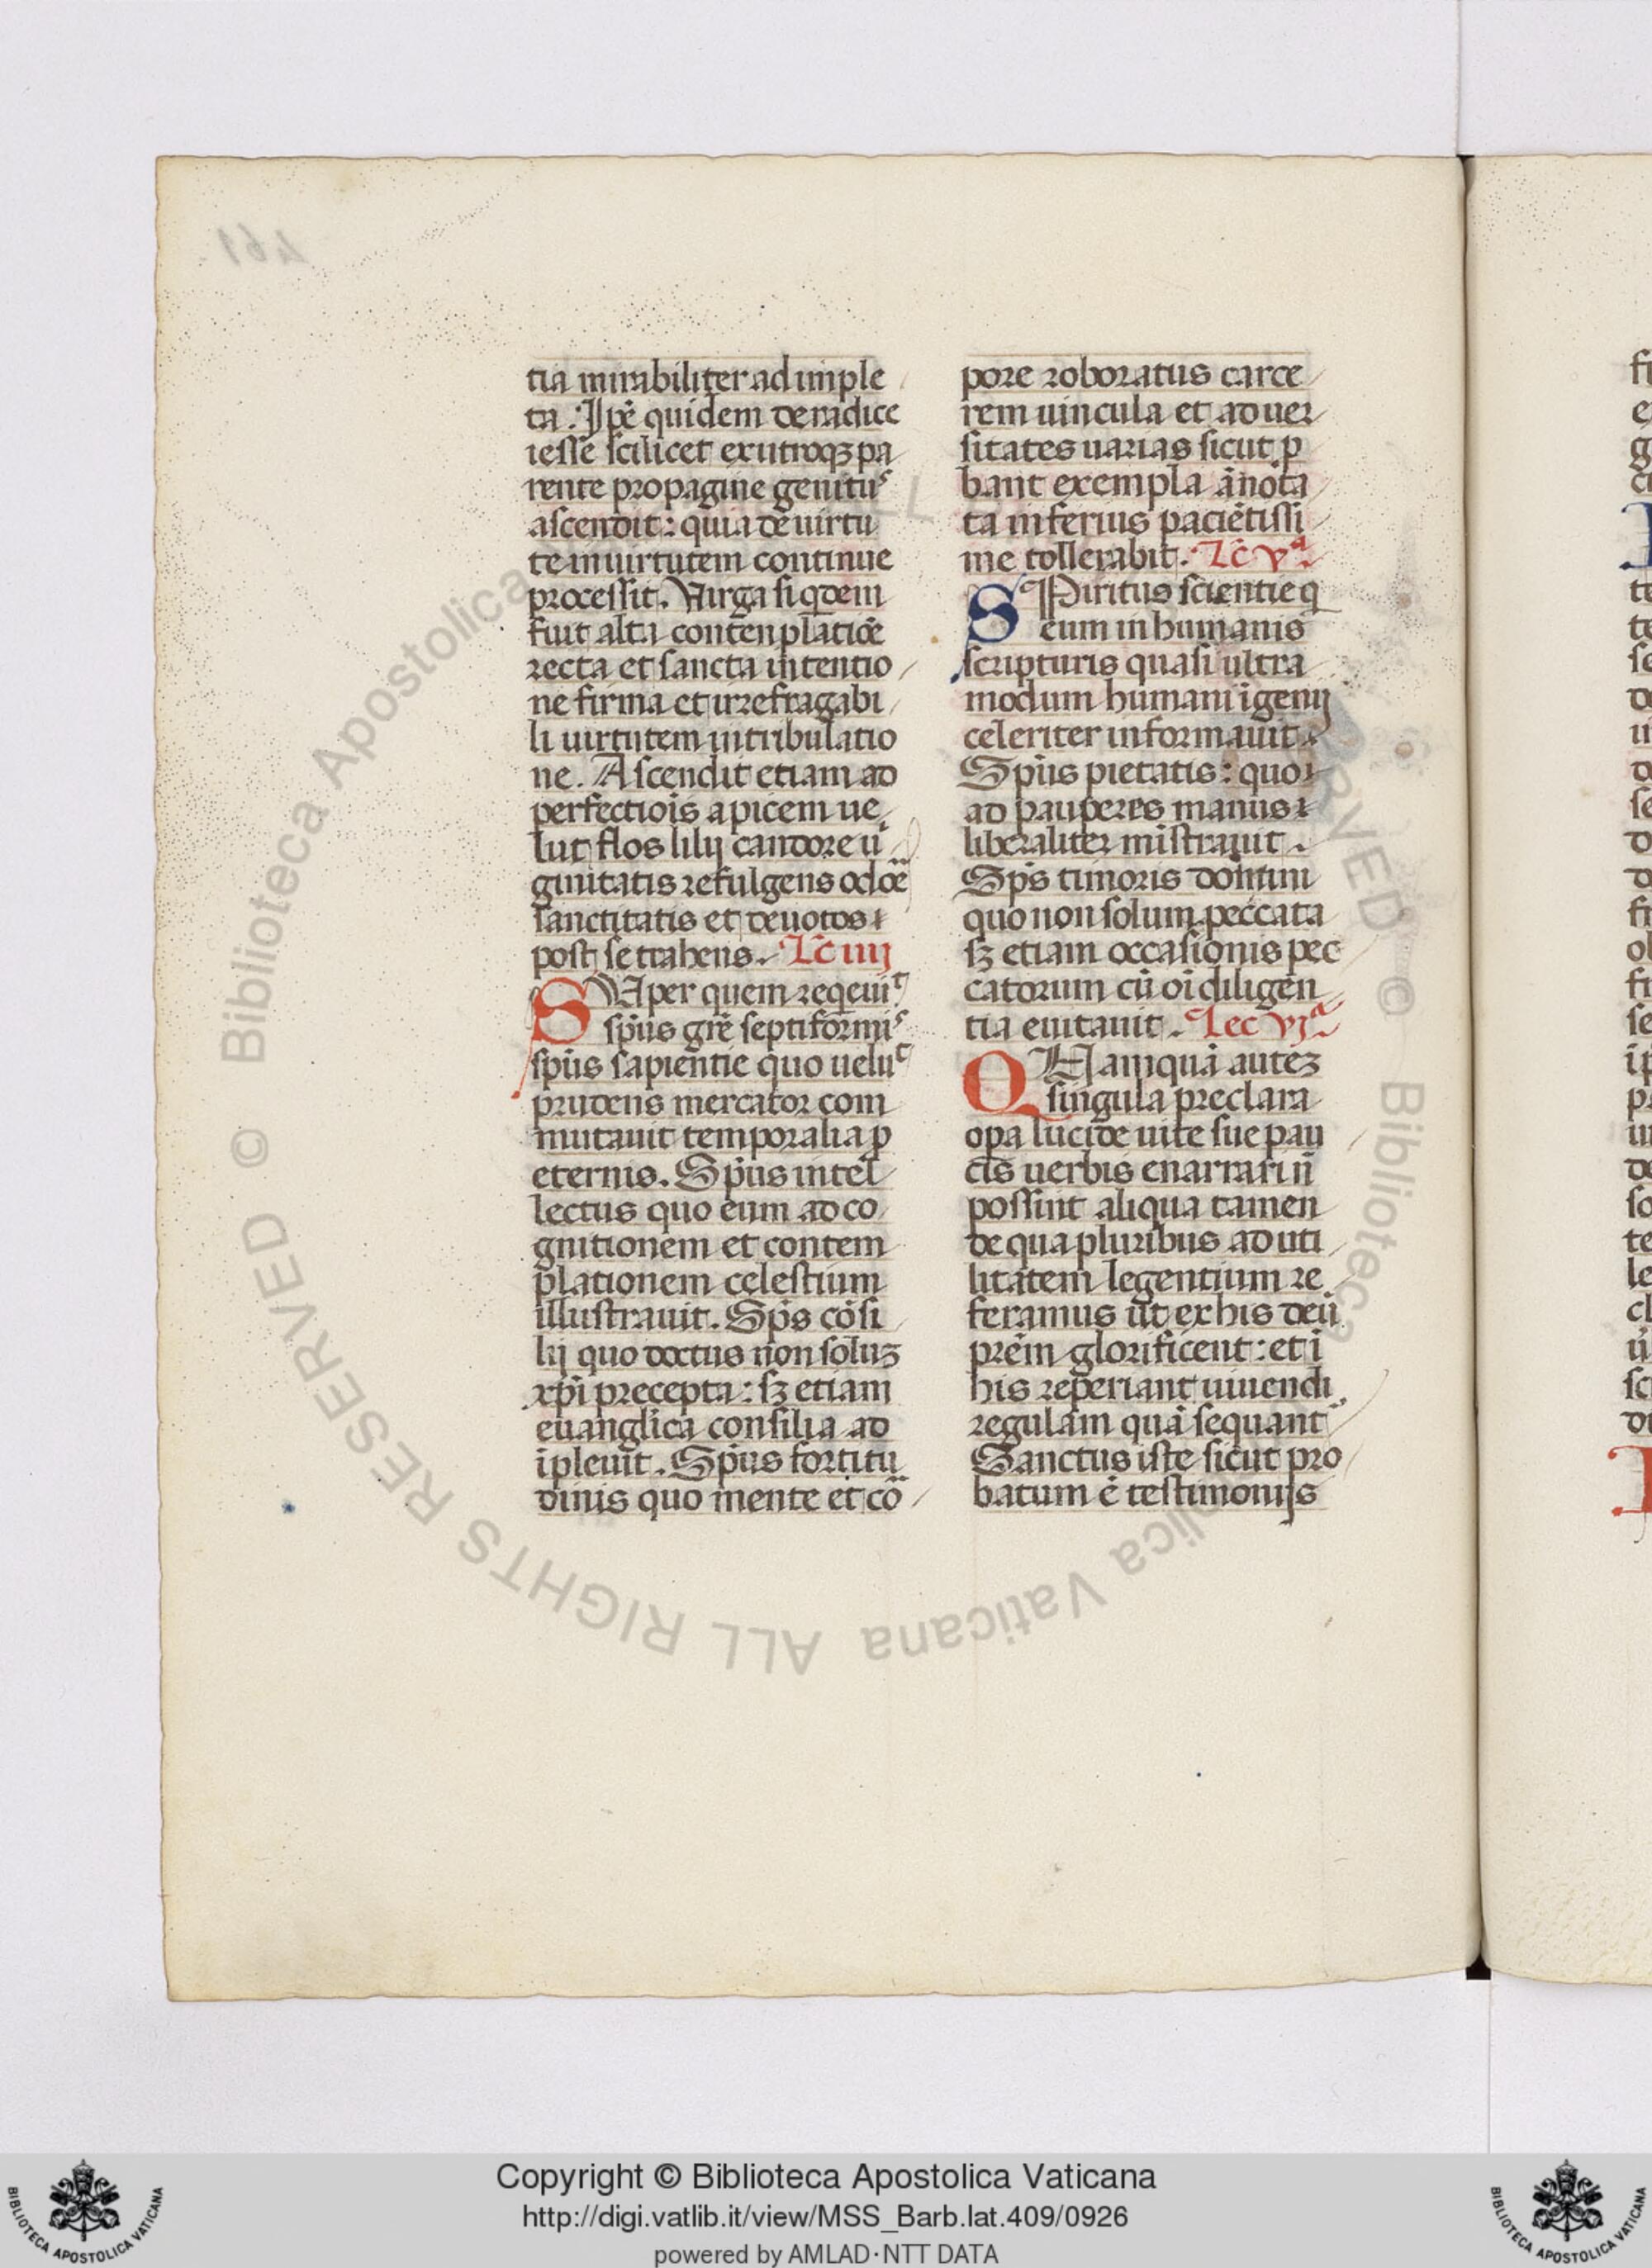 tia mirabiliter ad imple
ta. Ip̄e quidem de radice
iesse scilicet ex utroqꝫ pa
rente propagine genitu᷒
ascendit: quia de uirtu
te in uirtutem continue
processit. Virga siqdem
fuit alta contenplatiōe
recta et sancta intentio
ne firma et irrefragabi
li uirtutem in tribulatio
ne. Ascendit etiam ad
perfectiōis apicem ue
lut flos lilij candore ū
ginitatis refulgens odoē
sanctitatis et deuotos
post se trahens. Lc̄ iiij
SUper quem reqeuiᵗ
sp̄us gr̄e septiformi᷒
sp̄us sapientie quo ueluᵗ
prudens mercator com
mutauit temporalia ꝓ
eternis. Sp̄us intel
lectus quo eum ad co
gnitionem et contem
plationem celestium
illustrauit. Sp̄s cōsi
lij quo doctus non soluꝫ
xp̄i precepta: sꝫ etiam
euanglica consilia ad
ipleuit. Sp̄us fortitu
dinis quo mente et cō
pore roboratus carce
rem uincula et aduer
sitates uarias sicut ꝓ
bant exempla ānota
ta inferius paciētissi
me tollerabit. Lc̄ vᵃ.
SPiritus scientie q
eum in humanis
scripturis quasi ultra
modum humani īgenij
celeriter informauit
Sp̄us pietatis: quo
ad pauperes manus
liberaliter mīstrauit.
Sp̄s timoris domini
quo non solum peccata
sꝫ etiam occasionis pec
catorum cū oī diligen
tia euitauit. Lec vjᵃ
QUamquā auteꝫ
singula preclara
opa lucide uite sue pau
cis uerbis enarrari n̄
possint aliqua tamen
de qua pluribus ad uti
litatem legentium re
feramus ut ex his deū
prēm glorificent: et ī
his reperiant uiuendi
regulam quā sequant
Sanctus iste sicut pro
batum ē testimonijs
Copyright © Biblioteca Apostolica Vaticana
http://digi.vatlib.it/view/MSS_Barb.lat.409/0926
powered by AMLAD·NTT DATA